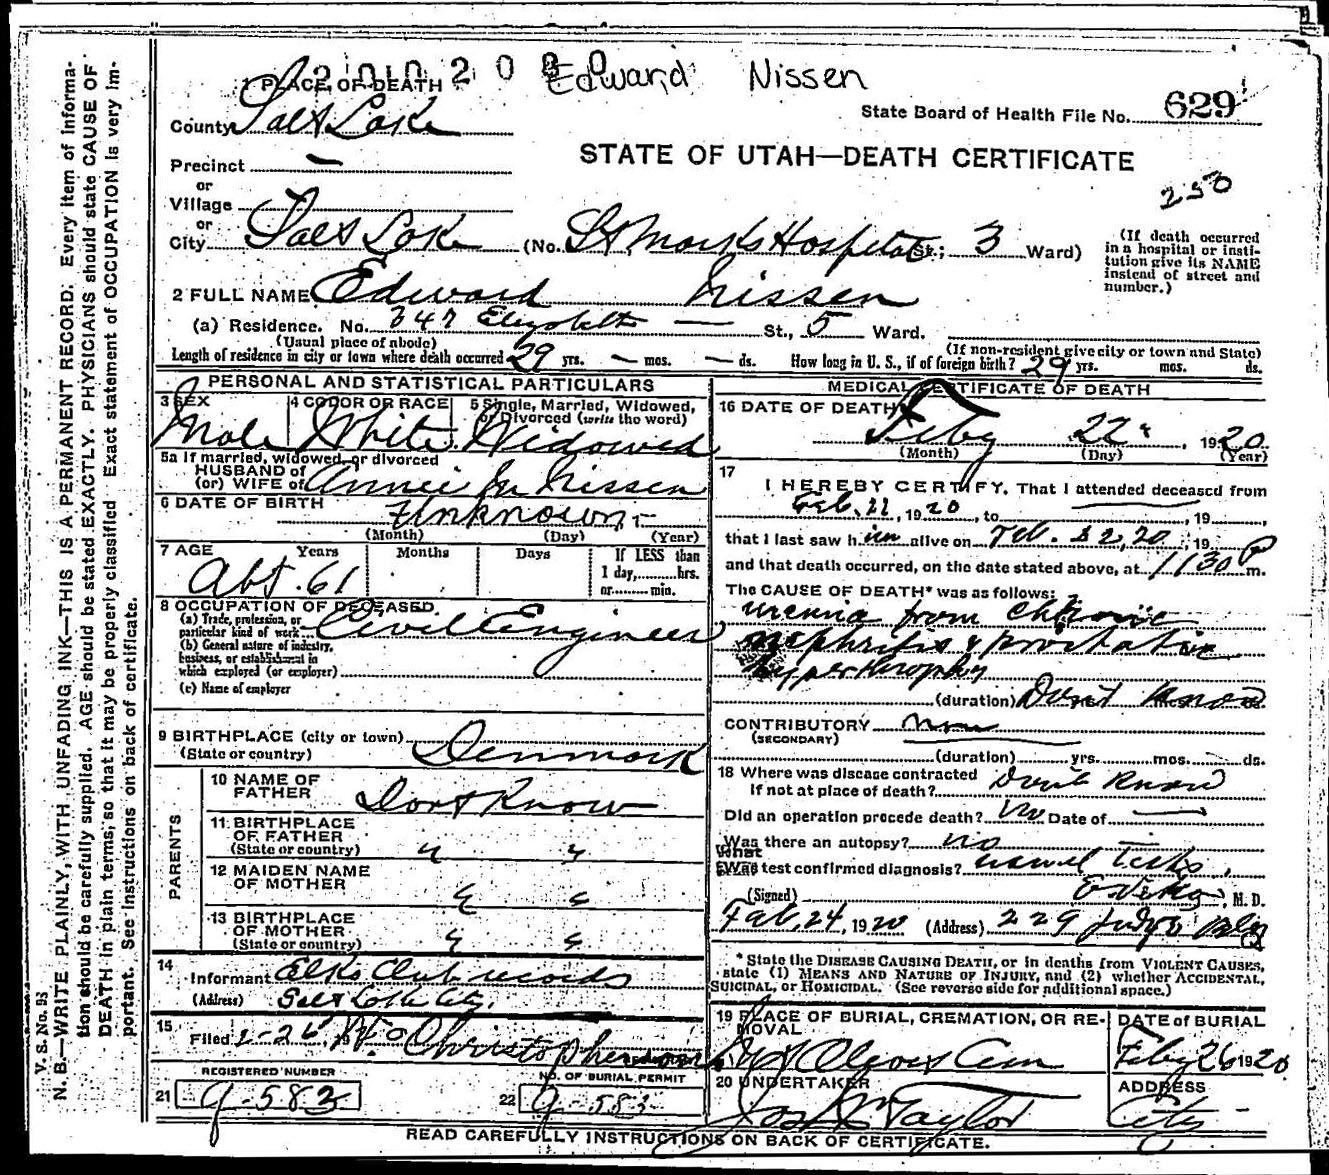 2010200
Edward Nissen
1 PLACE OF DEATH
State Board of Health File No. 629
County Salt Lake
STATE OF UTAH—DEATH CERTIFICATE
Precinct —
250
or
Village
or
City Salt Lake (No. St Marks Hospital St.; 3 Ward)
(If death occurred in a hospital or institution give its NAME instead of street and number.)
2 FULL NAME Edward Nissen
(a) Residence. No. 347 Elizabeth — St., 5 Ward.
(Usual place of abode) (If non-resident give city or town and State)
Length of residence in city or town where death occurred 29 yrs. — mos. — ds. How long in U. S., if of foreign birth? 29 yrs. mos. ds.
PERSONAL AND STATISTICAL PARTICULARS
3 SEX 4 COLOR OR RACE 5 Single, Married, Widowed, or Divorced (write the word)
Male White Widowed
5a If married, widowed, or divorced
HUSBAND of
(or) WIFE of Annie M Nissen
6 DATE OF BIRTH Unknown
(Month) (Day) (Year)
7 AGE Years Months Days If LESS than
1 day, hrs.
or min.
Abt. 61
8 OCCUPATION OF DECEASED.
(a) Trade, profession, or
particular kind of work Civil Engineer
(b) General nature of industry,
business, or establishment in
which employed (or employer)
(c) Name of employer
9 BIRTHPLACE (city or town)
(State or country) Denmark
PARENTS
10 NAME OF
FATHER Dont Know
11 BIRTHPLACE
OF FATHER
(State or country) " "
12 MAIDEN NAME
OF MOTHER " "
13 BIRTHPLACE
OF MOTHER
(State or country) " "
14
Informant Elks Club records
(Address) Salt Lake City.
15
Filed 2-26 19 Christophersen
REGISTERED NUMBER NO. OF BURIAL PERMIT
21 9-583 22 9-583
MEDICAL CERTIFICATE OF DEATH
16 DATE OF DEATH
Feby 22" , 1920
(Month) (Day) (Year)
17
I HEREBY CERTIFY, That I attended deceased from
Feb. 22, 1920, to , 19 ,
that I last saw him alive on Feb. 22, 20, 19
and that death occurred, on the date stated above, at 1130 P m.
The CAUSE OF DEATH* was as follows:
uremia from chronic
nephritis & prostatic
hyperthrophy
(duration) Dont know
CONTRIBUTORY
(SECONDARY)
(duration) yrs. mos. ds.
18 Where was disease contracted
If not at place of death? Dont Know
Did an operation precede death? No Date of —
Was there an autopsy? no
What
Was test confirmed diagnosis? usual Tests
(Signed) , M. D.
Feb, 24, 1920 (Address) 229 Judge Bldg
* State the DISEASE CAUSING DEATH, or in deaths from VIOLENT CAUSES,
state (1) MEANS AND NATURE OF INJURY, and (2) whether ACCIDENTAL,
SUICIDAL, or HOMICIDAL. (See reverse side for additional space.)
19 PLACE OF BURIAL, CREMATION, OR REMOVAL DATE of BURIAL
Mt Olivet Cem Feby 26 1920
20 UNDERTAKER ADDRESS
Jos Wm Taylor City
READ CAREFULLY INSTRUCTIONS ON BACK OF CERTIFICATE.
V. S. No. 93
N. B.—WRITE PLAINLY, WITH UNFADING INK—THIS IS A PERMANENT RECORD. Every item of information should be carefully supplied. AGE should be stated EXACTLY. PHYSICIANS should state CAUSE OF DEATH in plain terms, so that it may be properly classified Exact statement of OCCUPATION is very important. See instructions on back of certificate.